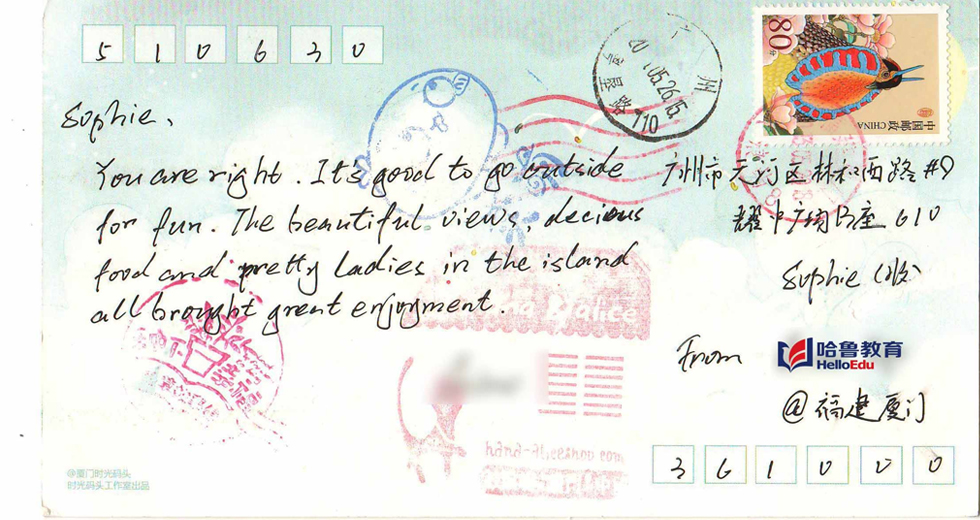 510630
Sophie,
You are right. It's good to go outside
for fun. The beautiful views, decious
food and pretty ladies in the island
all brought great enjoyment.
80
中国邮政 CHINA
广州
05.26.15
710
广州市天河区林和西路#9
耀中广场B座610
Sophie(收)
From
哈鲁教育
HelloEdu
@福建厦门
361000
alice
@厦门时光码头
时光码头工作室出品